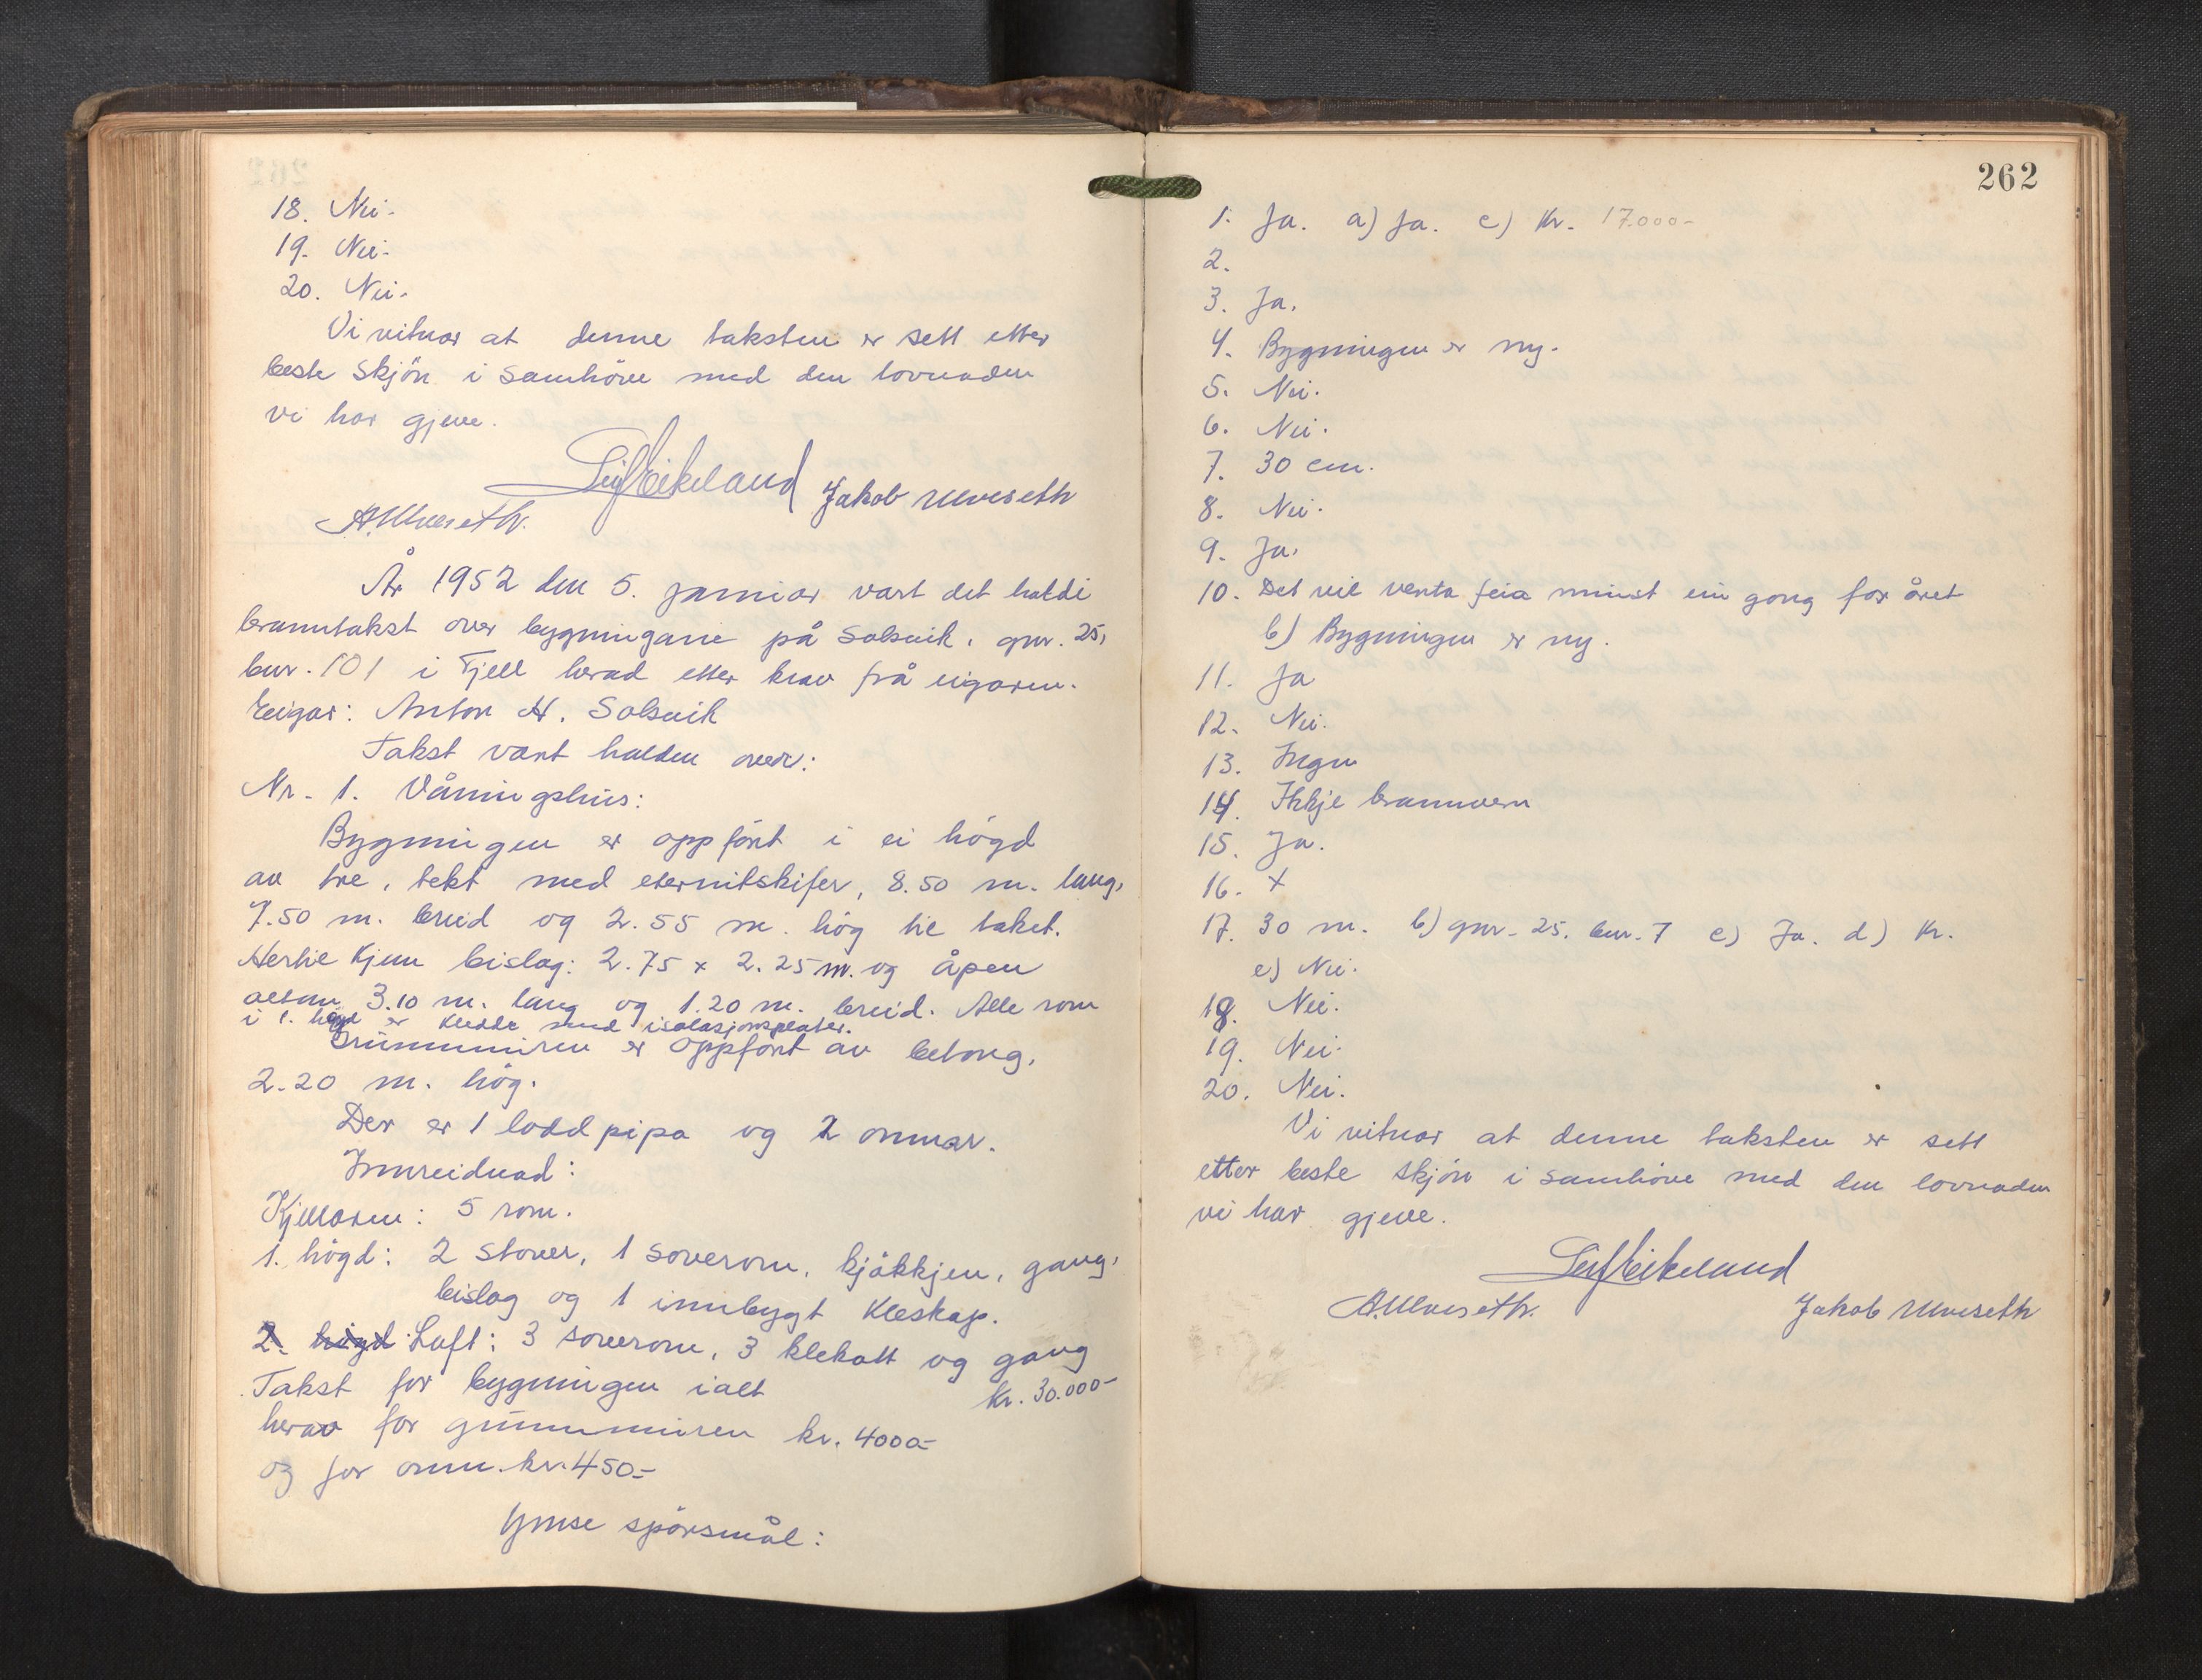 18. Nei.
19. Nei.
20. Nei.
Vi vitnar at denne taksten er sett etter
beste skjön i samhöve med den lovnaden
vi har gjeve.
Leif Eikeland Jakob Ulveseth
A. Ulveseth.
År 1952 den 5. januar vart det haldi
branntakst over bygningane på Solsvik, gnr. 25,
bnr. 101 i Fjell herad etter krav frå eigaren.
Eigar: Anton H. Solsvik
Takst vart halden over:
Nr. 1. Våningshus:
Bygningen er oppfört i ei högd
av tre, tekt med eternitskifer, 8.50 m. lang,
7.50 m. breid og 2.55 m. hög til taket.
Hertil kjem bislag: 2.75 x 2.25 m. og åpen
altan 3.10 m. lang og 1.20 m. breid. Alle rom
i 1. högd er kledde med isolasjonsplater.
Grunnmuren er oppfört av betong,
2.20 m. hög.
Der er 1 lodd pipa og 2 omnar.
Innreidnad:
Kjellaren: 5 rom.
1. högd: 2 stover, 1 soverom, kjökkjen, gang,
bislag og 1 innbygt kleskap.
2. högd Loft: 3 soverom, 3 klekott og gang
Takst for bygningen ialt kr. 30.000-
herav for grunnmuren kr. 4000-
og for omn. kr. 450-
Ymse spörsmål:
262
1. Ja. a) Ja. c) Kr. 17.000-
2.
3. Ja.
4. Bygningen er ny.
5. Nei.
6. Nei.
7. 30 cm.
8. Nei.
9. Ja.
10. Det vil verta feia minst ein gong for året
b) Bygningen er ny.
11. Ja
12. Nei.
13. Ingen
14. Ikkje brannvern
15. Ja.
16. x
17. 30 m. b) gnr. 25. bnr. 7 c) Ja. d) Kr.
e) Nei.
18. Nei.
19. Nei.
20. Nei.
Vi vitnar at denne taksten er sett
etter beste skjön i samhöve med den lovnaden
vi har gjeve.
Leif Eikeland
A. Ulveseth. Jakob Ulveseth